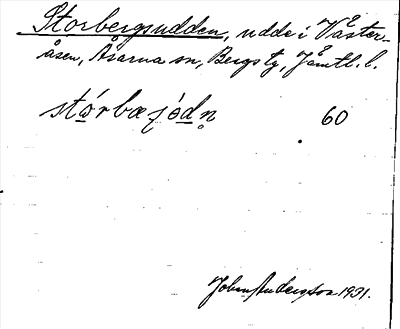 Storbergsudden, udde i Väster-
åsen, Åsarna sn, Bergs tg, Jämtl. l.
stórbæjódn 60
Johan Anderzon 1931.